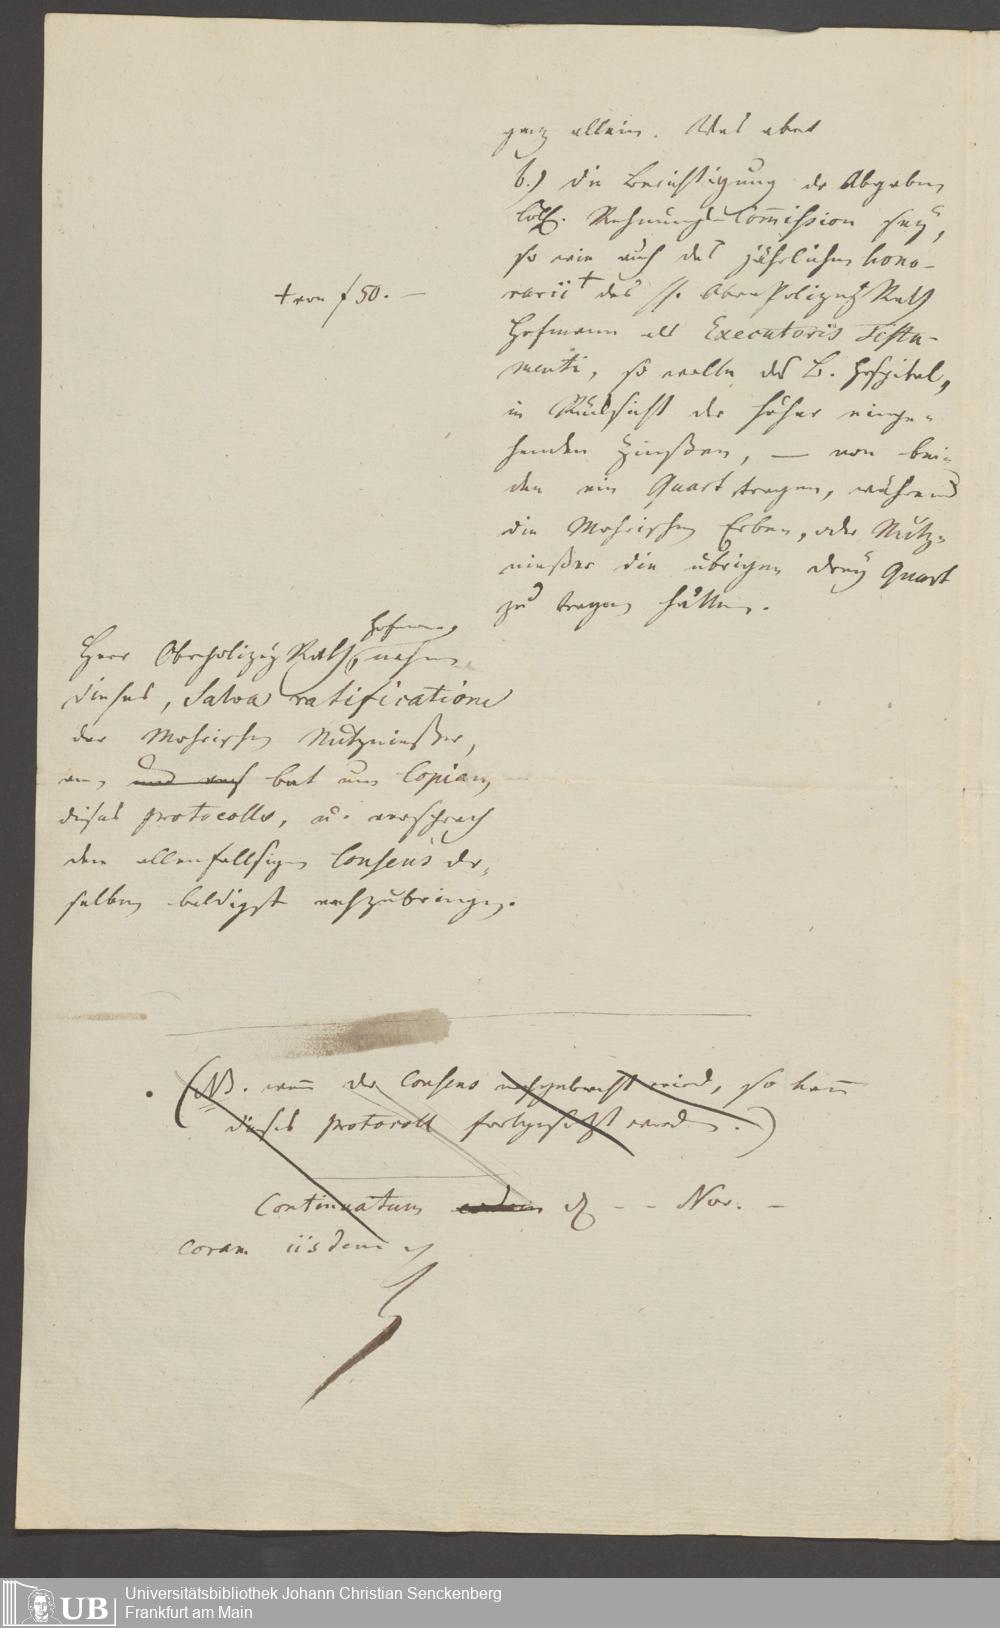 ganz allein. Was aber
b.) die Berichtigung der Abgaben
löbl. Rechnungs-Commission seÿ,
so wie auch des jährlichen hono-
rarii † des H. OberPolizeÿRath
Hofmann als Executoris Testa-
menti, so wolle das B. Hospital,
in Rücksicht der höher einge-
henden Zinßen, — von bei-
den ein Quart tragen, während
die Mohrischen Erben, oder Nutz-
nießer die übrigen dreÿ Quart
zu tragen hätten.
† von f 50. —
Hofmann
Herr OberpolizeÿRath nahm
dieses, Salva ratificatione
der Mohrischen Nutznießer,
an, und auch bat um Copiam
dieses protocolls, u. versprach
den allenfallsigen Consens der-
selben baldigst nachzubringen.
(NB. wenn der Consens nachgebracht wird, so kann
dieses protocoll fortgesetzt werden.)
Continuatum eodem d. - - Nov. -
coram iisdem
UB
Universitätsbibliothek Johann Christian Senckenberg
Frankfurt am Main